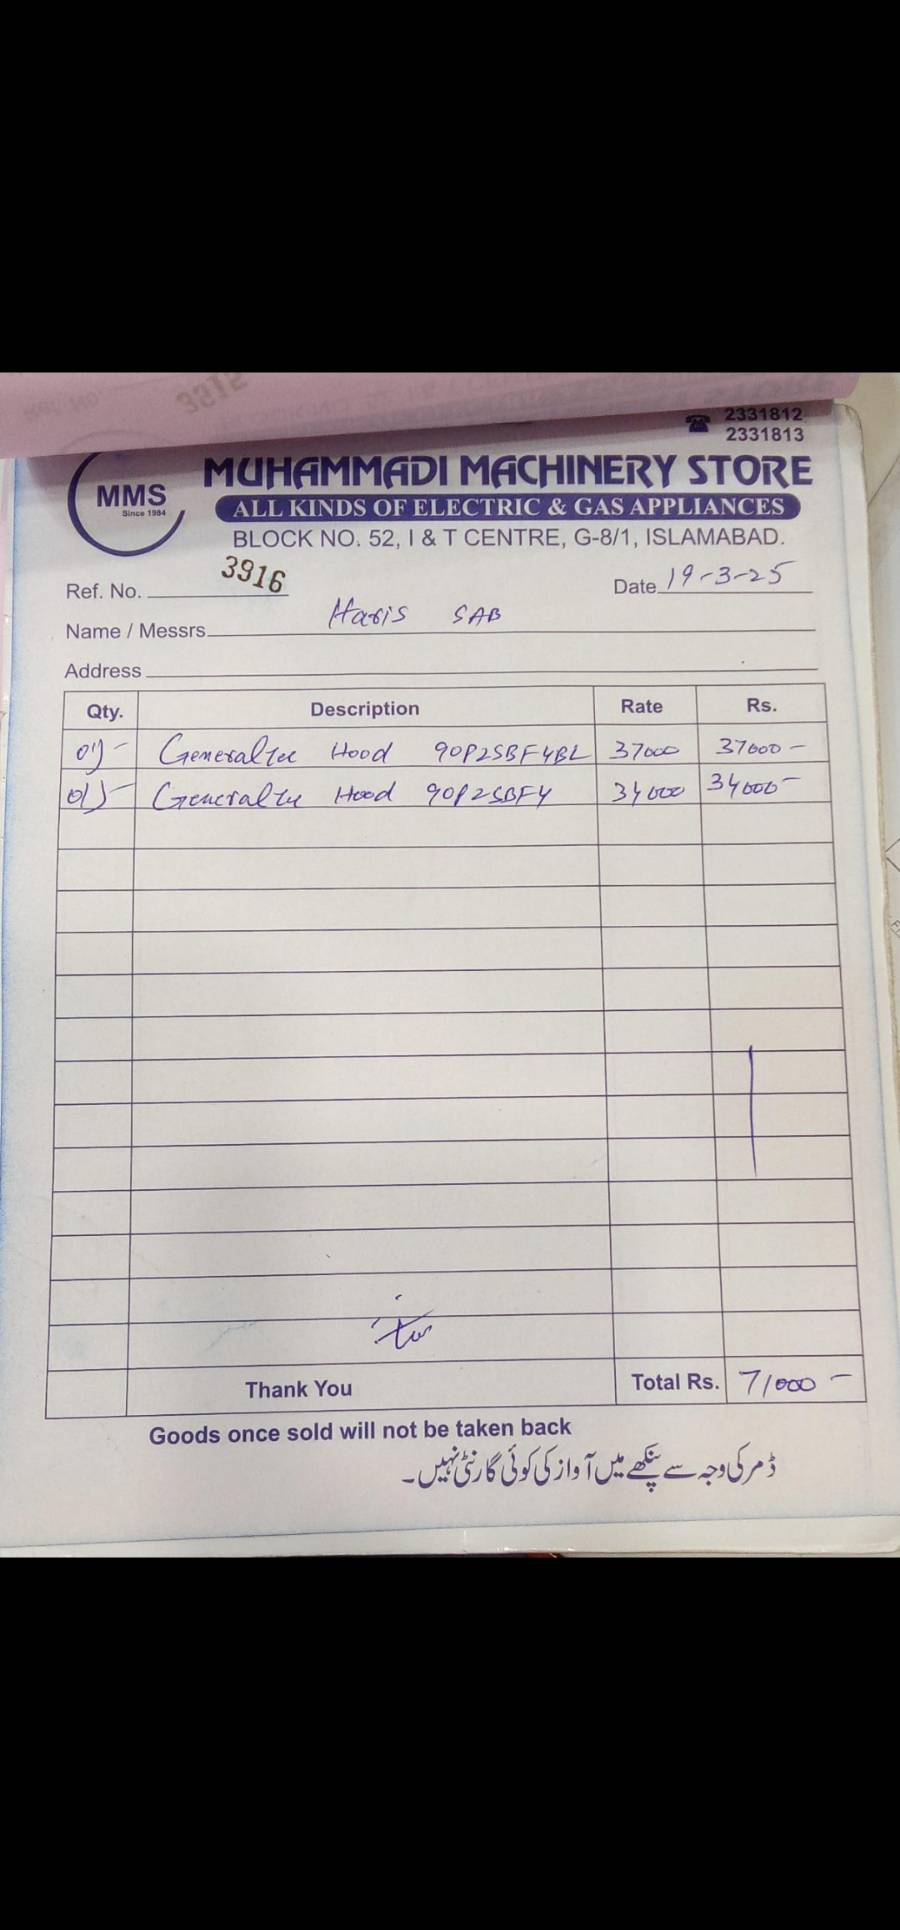 2331812
2331813
MMS
Since 1984
MUHAMMADI MACHINERY STORE
ALL KINDS OF ELECTRIC & GAS APPLIANCES
BLOCK NO. 52, I & T CENTRE, G-8/1, ISLAMABAD.
Ref. No. 3916 Date 19-3-25
Name / Messrs Haris SAB
Address
Qty. Description Rate Rs.
01)- Generaltec Hood 90P2SBF4BL 37000 37000-
01)- Generaltec Hood 90P2SBF4 34000 34000-
Thank You Total Rs. 71000-
Goods once sold will not be taken back
ڈمر کی وجہ سے پنکھے میں آواز کی کوئی گارنٹی نہیں۔